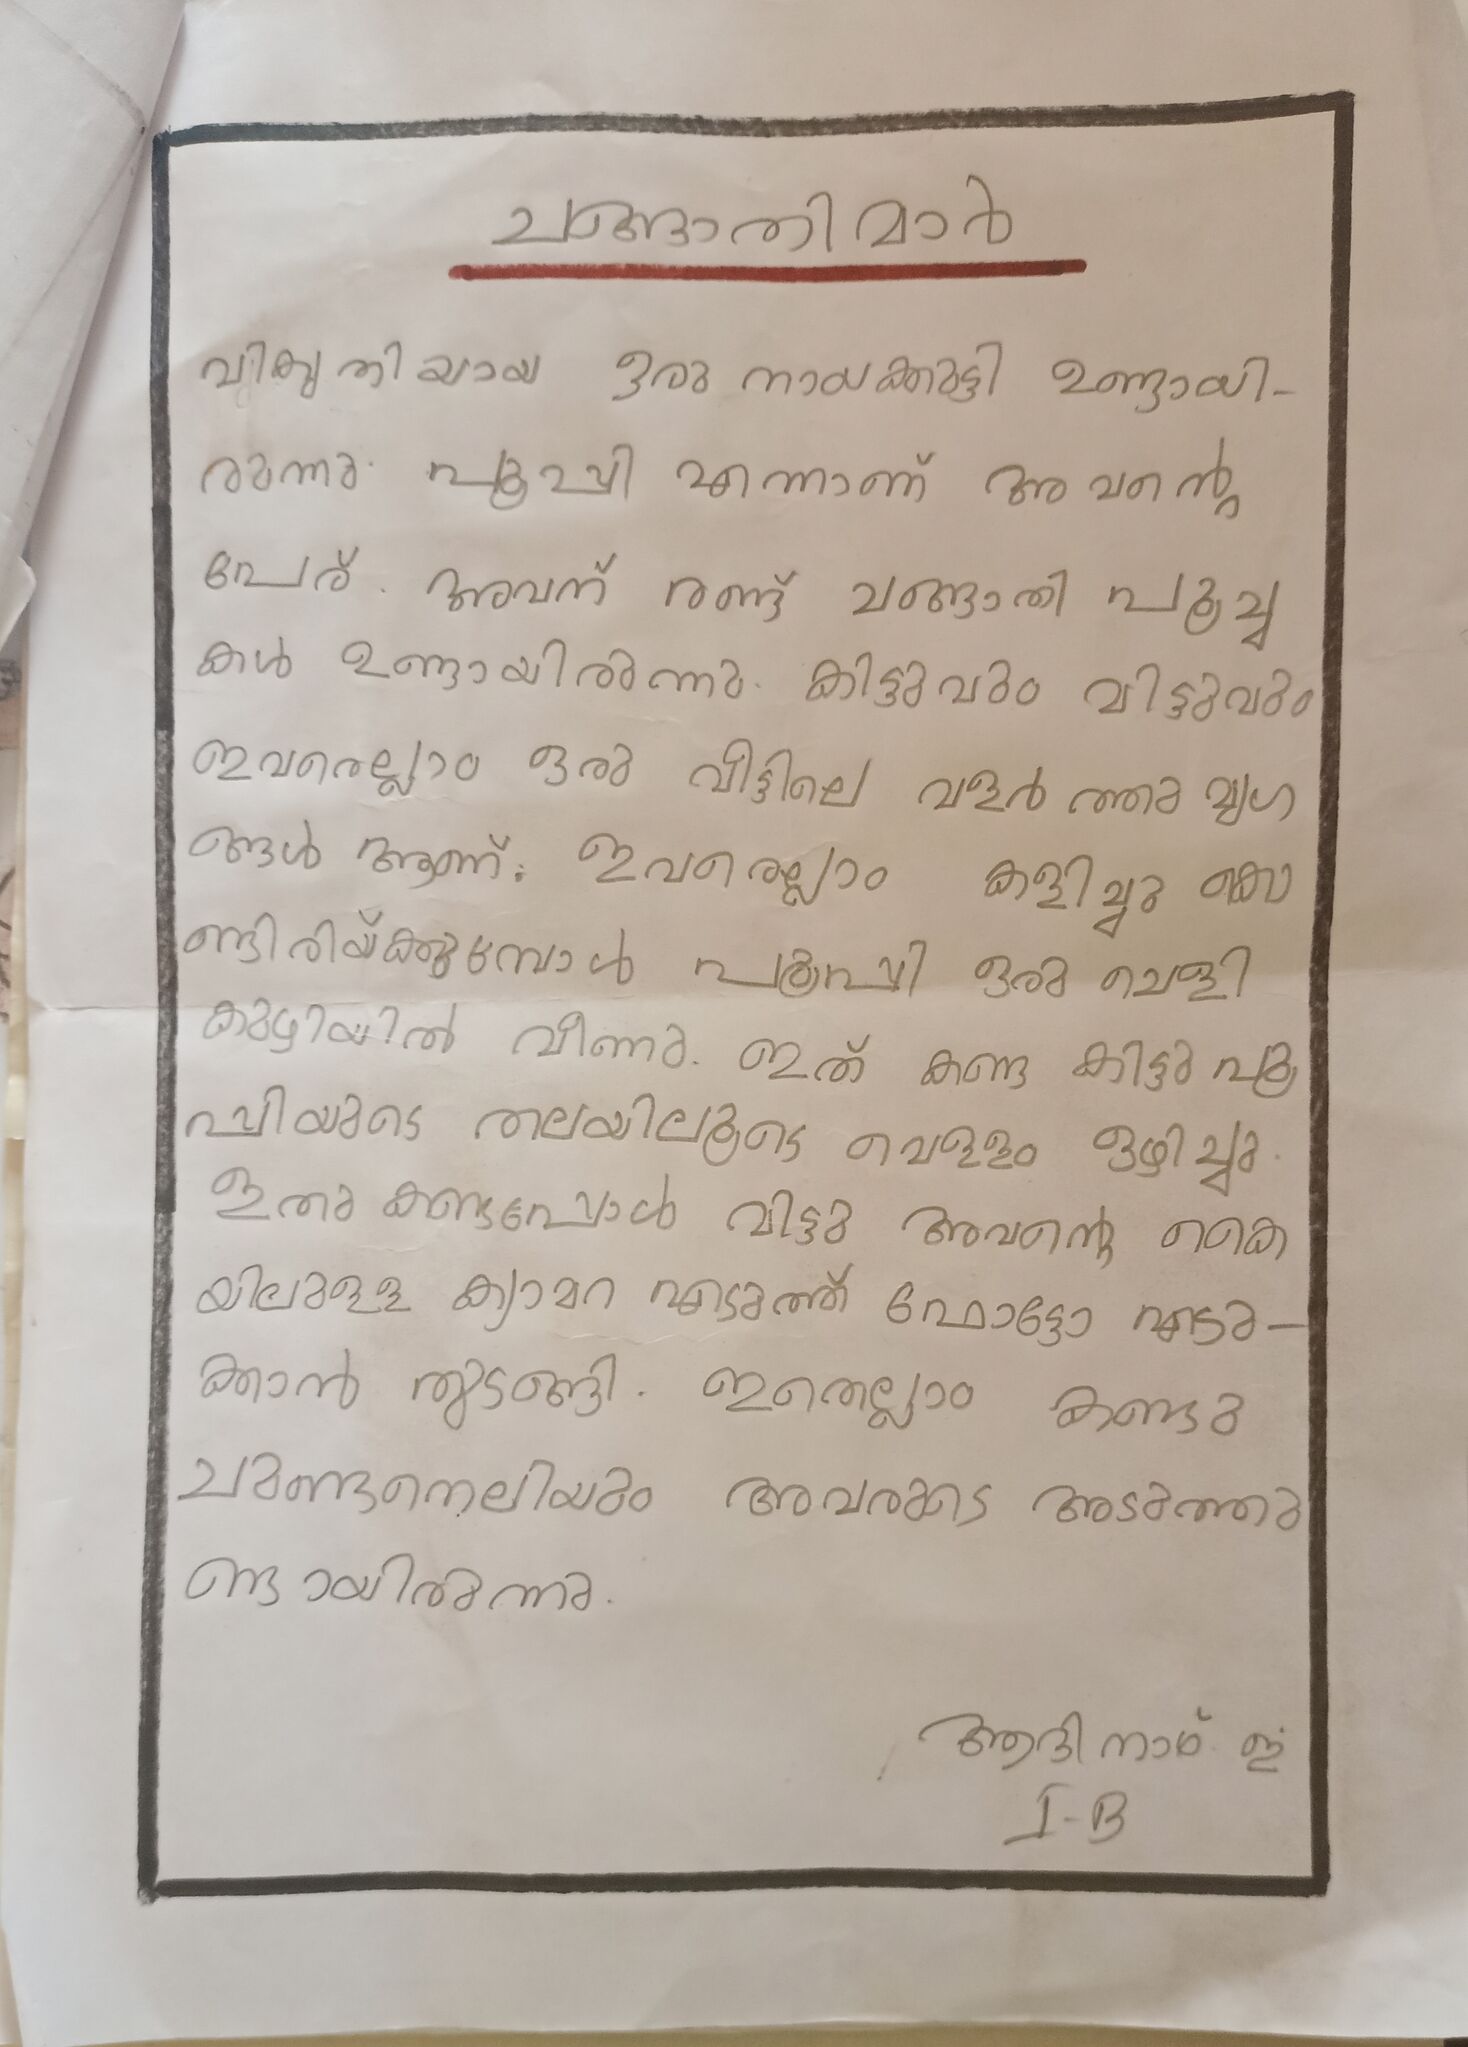 ചങ്ങാതിമാർ
വികൃതിയായ ഒരു നായക്കുട്ടി ഉണ്ടായി-
രുന്നു. പൂപ്പി എന്നാണ് അവന്റെ
പേര്. അവന് രണ്ട് ചങ്ങാതി പൂച്ച
കൾ ഉണ്ടായിരുന്നു. കിട്ടുവും വിട്ടുവും
ഇവരെല്ലാം ഒരു വീട്ടിലെ വളർത്തു മൃഗ
ങ്ങൾ ആണ്. ഇവരെല്ലാം കളിച്ചു കൊ
ണ്ടിരിയ്ക്കുമ്പോൾ പൂപ്പി ഒരു ചെളി
കുഴിയിൽ വീണു. ഇത് കണ്ട കിട്ടു പൂ
പ്പിയുടെ തലയിലൂടെ വെള്ളം ഒഴിച്ചു.
ഇതു കണ്ടപ്പോൾ വിട്ടു അവന്റെ കൈ
യിലുള്ള ക്യാമറ എടുത്ത് ഫോട്ടോ എടു-
ക്കാൻ തുടങ്ങി. ഇതെല്ലാം കണ്ടു
ചുണ്ടനെലിയും അവരുടെ അടുത്തു
ണ്ടായിരുന്നു.
ആദിനാഥ്. ഇ
I-B